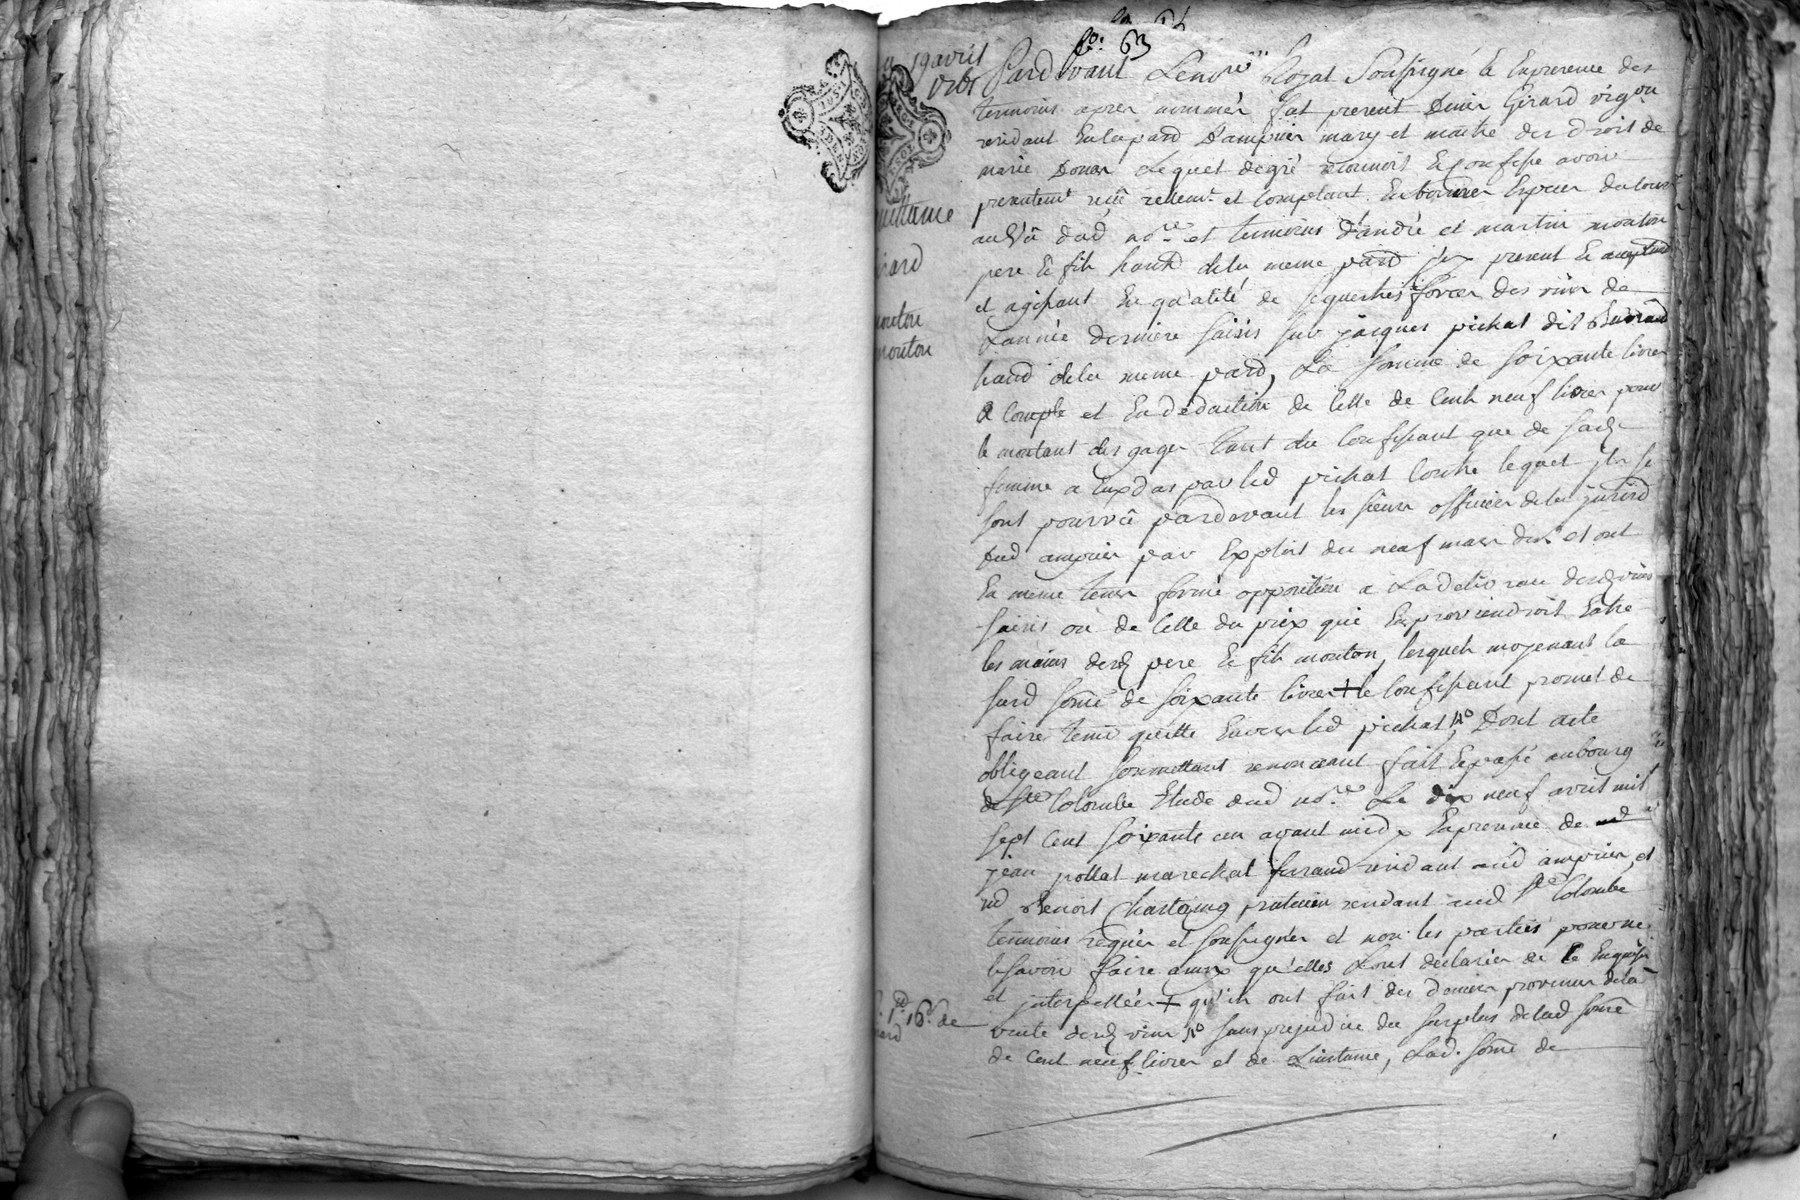 fo. 63
19 avril
1761
Pardevant Le no.re Royal Soussigné & En presence des
temoins apres nommés fut present Denis Girard vigon
residant En la par.d D'ampuis mary et maitre des droits de
marie Donas Lequel degré reconnoit & Confesse avoir
presentemt. reçû réellemt. et Comptant En bonnes Especes du cours
au vû dud no.re et temoins D'andré et martin mouton
pere & fils habds. de la meme par.d jcy present & acceptant
et agissant En qualité de sequestres forcés des vins de
L'année derniere saisis sur jacques pichat dit
habd. de la meme par.d, La somme de soixante livres
a Compte et En deduction de Celle de Cent neuf livres pour
le montant des gages tant du Confessant que de sad.
femme a Eux dûs par led pichat Contre lequel jls se
sont pourvû pardevant les sieurs officiers de la jurisd
dud ampuis par Exploit du neuf mars der. et ont
En meme tems formé opposition a La delivrance desd vins
saisis où de Celle du prix qui En proviendroit Entre
les mains desd pere & fils mouton, lesquels moyenant la
susd some de soixante livres + le Confessant promet de
faire tenir quitte Envers led pichat, Dont acte
obligeant soumettant renonceant fait & passé au bourg
de Ste Colombe Etude dud no.re Le dix neuf avril mil
sept Cent soixante un avant midy En presence de
jean pollat marechal ferrand residant aud ampuis, et
Benoit Chartaing praticien residant aud Ste Colombe
temoins requis et soussignés et non les parties pour ne
le savoir faire ainsy qu'elles L'ont declarées de ce Enquises
et jnterpellées + qu'ils ont fait des deniers provenus de la
vente desd vins sans prejudice du surplus de lad some
de Cent neuf livres et de L'instance, Lad. some de
quittance
Girard
mouton
mouton
16 s. de